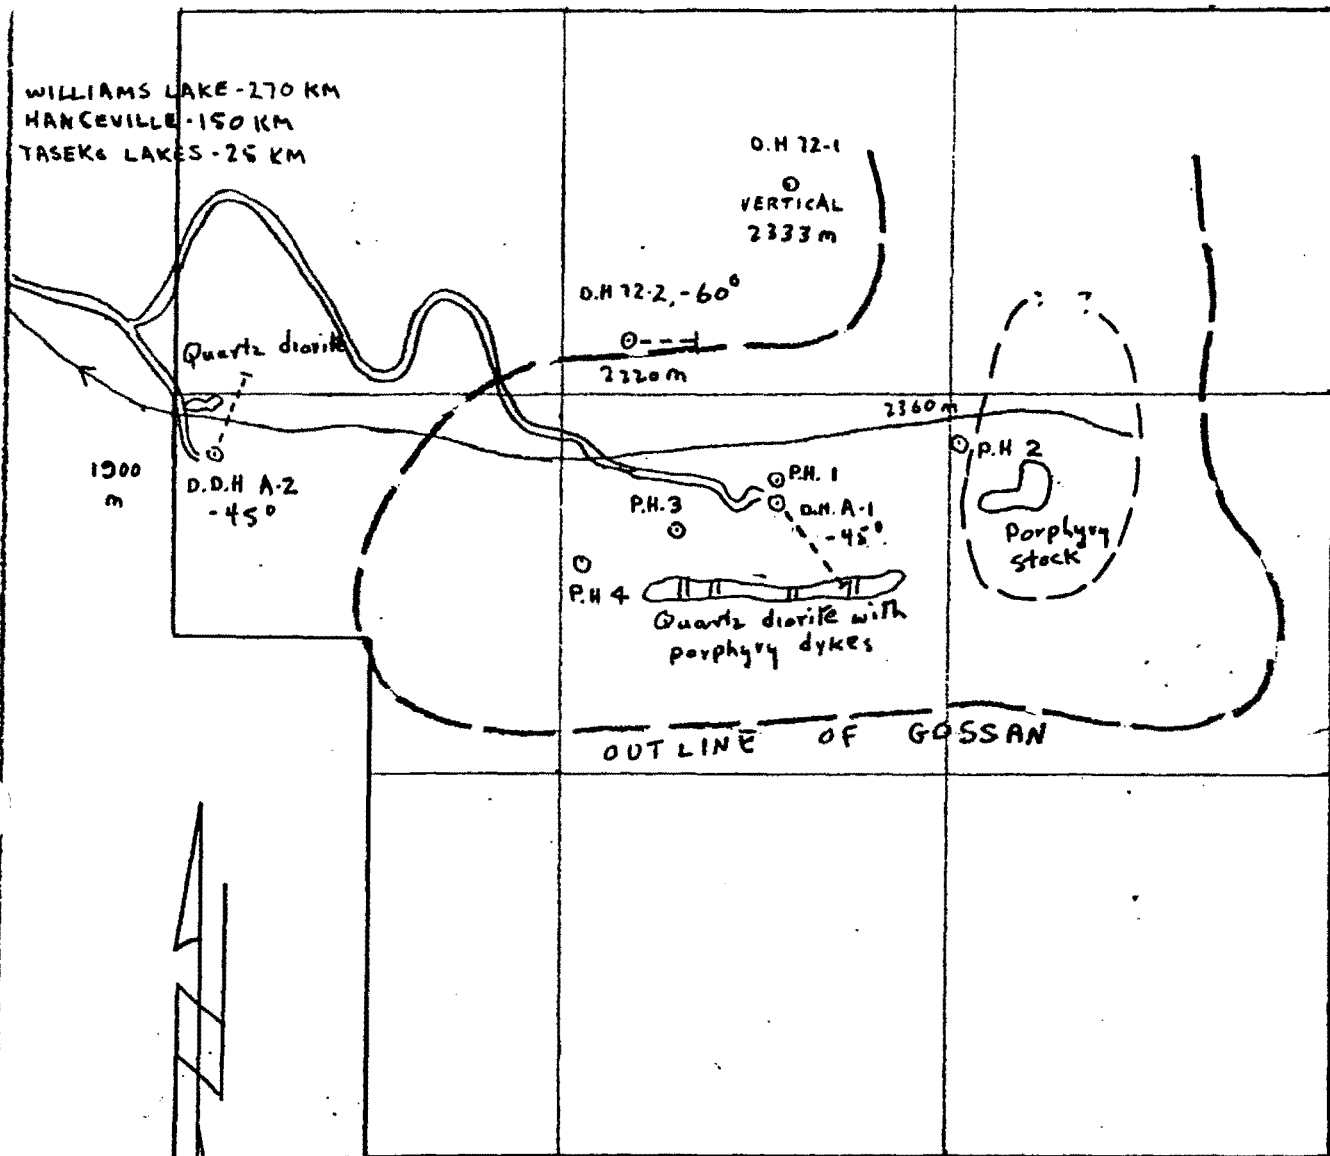 WILLIAMS LAKE - 270 KM
HANCEVILLE - 150 KM
TASEKO LAKES - 25 KM
D.H 72-1
VERTICAL
2333 m
D.H 72-2, -60°
2220 m
Quartz diorite
2360 m
1900
m
D.D.H A-2
-45°
P.H. 1
D.H. A-1
-45°
P.H. 2
P.H. 3
P.H 4
Porphyry
stock
? ?
Quartz diorite with
porphyry dykes
OUTLINE OF GOSSAN